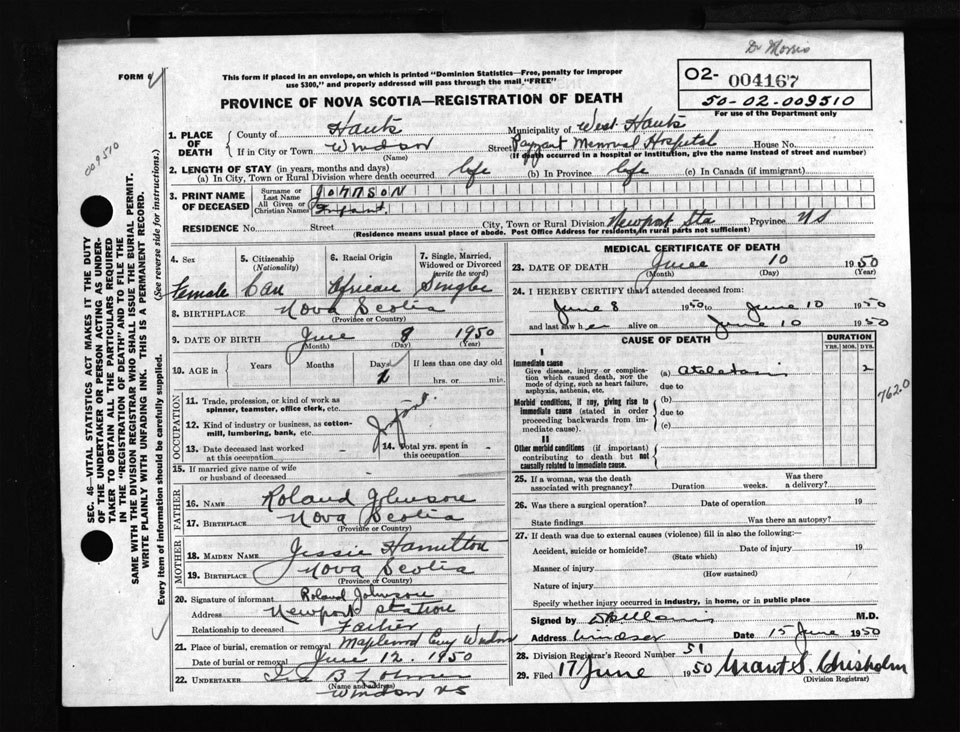 Dr Morris
FORM 4
This form if placed in an envelope, on which is printed "Dominion Statistics—Free, penalty for improper
use $300," and properly addressed will pass through the mail "FREE"
O2- 004167
50-02-009510
For use of the Department only
PROVINCE OF NOVA SCOTIA—REGISTRATION OF DEATH
009510
SEC. 46—VITAL STATISTICS ACT MAKES IT THE DUTY
OF THE UNDERTAKER OR PERSON ACTING AS UNDER-
TAKER TO OBTAIN ALL THE PARTICULARS REQUIRED
IN THE "REGISTRATION OF DEATH" AND TO FILE THE
SAME WITH THE DIVISION REGISTRAR WHO SHALL ISSUE THE BURIAL PERMIT.
WRITE PLAINLY WITH UNFADING INK. THIS IS A PERMANENT RECORD.
Every item of information should be carefully supplied. (See reverse side for instructions.)
1. PLACE OF DEATH County of Hants Municipality of West Hants
If in City or Town Windsor Street Payzant Memorial Hospital House No.
(Name) (If death occurred in a hospital or institution, give the name instead of street and number)
2. LENGTH OF STAY (in years, months and days)
(a) In City, Town or Rural Division where death occurred life (b) In Province life (c) In Canada (if immigrant)
3. PRINT NAME OF DECEASED Surname or Last Name JOHNSON
All Given or Christian Names Infant
RESIDENCE No. Street City, Town or Rural Division Newport Sta Province NS
(Residence means usual place of abode. Post Office Address for residents in rural parts not sufficient)
4. Sex 5. Citizenship (Nationality) 6. Racial Origin 7. Single, Married, Widowed or Divorced (write the word)
Female Can African Single
8. BIRTHPLACE Nova Scotia
(Province or Country)
9. DATE OF BIRTH June 8 1950
(Month) (Day) (Year)
10. AGE in Years Months Days 2 If less than one day old
hrs. or min.
OCCUPATION
11. Trade, profession, or kind of work as
spinner, teamster, office clerk, etc.
12. Kind of industry or business, as cotton-
mill, lumbering, bank, etc.
Infant
13. Date deceased last worked at this occupation 14. Total yrs. spent in this occupation
15. If married give name of wife
or husband of deceased
FATHER
16. NAME Roland Johnson
17. BIRTHPLACE Nova Scotia
(Province or Country)
MOTHER
18. MAIDEN NAME Jessie Hamilton
19. BIRTHPLACE Nova Scotia
(Province or Country)
20. Signature of informant Roland Johnson
Address Newport Station
Relationship to deceased Father
21. Place of burial, cremation or removal Maplewood Cemy Windsor
Date of burial or removal June 12. 1950
22. UNDERTAKER Ira B
(Name and address)
Windsor NS
MEDICAL CERTIFICATE OF DEATH
23. DATE OF DEATH June 10 1950
(Month) (Day) (Year)
24. I HEREBY CERTIFY that I attended deceased from:
June 8 1950 to June 10 1950
and last saw her alive on June 10 1950
CAUSE OF DEATH DURATION
YRS. MOS. DYS.
I
Immediate cause
Give disease, injury or complica-
tion which caused death, NOT the
mode of dying, such as heart failure,
asphyxia, asthenia, etc.
(a) Atelectasis 2
due to
7620
Morbid conditions, if any, giving rise to
immediate cause (stated in order
proceeding backwards from im-
mediate cause).
(b)
due to
(c)
II
Other morbid conditions (if important)
contributing to death but not
causally related to immediate cause.
25. If a woman, was the death
associated with pregnancy? Duration weeks. Was there a delivery?
26. Was there a surgical operation? Date of operation 19
State findings Was there an autopsy?
27. If death was due to external causes (violence) fill in also the following:—
Accident, suicide or homicide? Date of injury 19
(State which)
Manner of injury
(How sustained)
Nature of injury
Specify whether injury occurred in industry, in home, or in public place
Signed by M.D.
Address Windsor Date 15 June 1950
28. Division Registrar's Record Number 51
29. Filed 17 June 1950 Grant S. Chisholm
(Division Registrar)